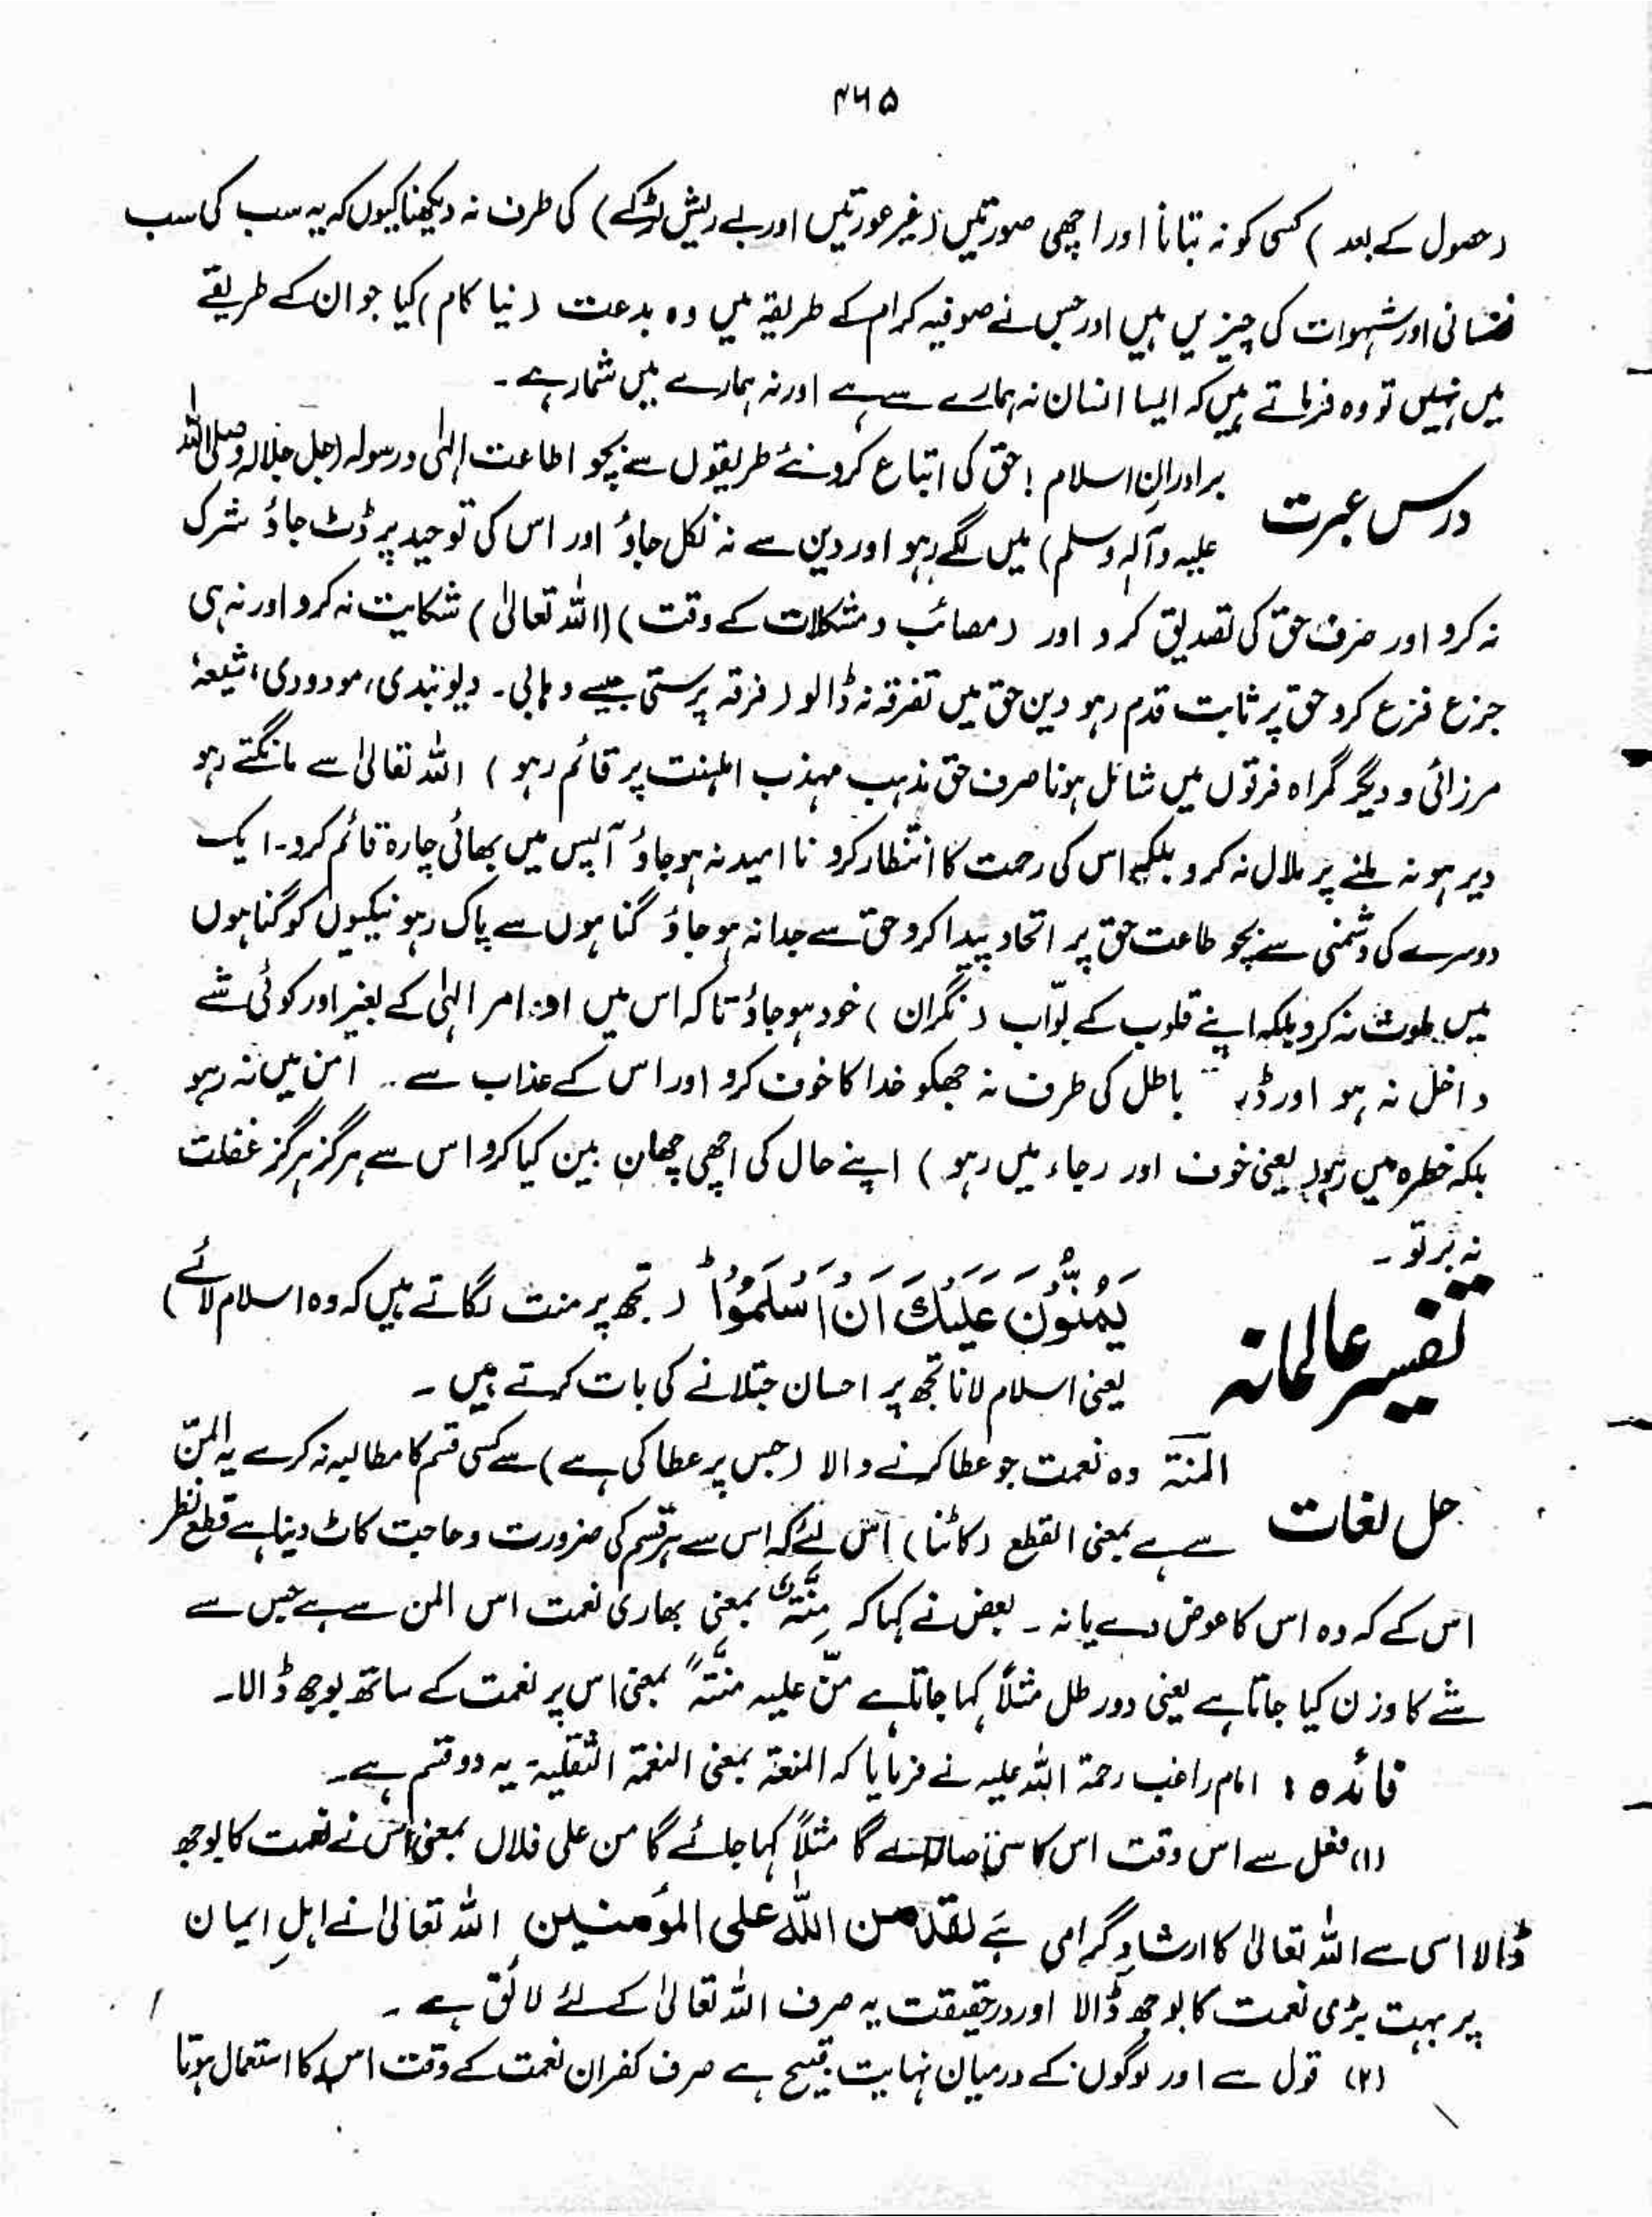 ۴۶۵
(حصول کے بعد) کسی کو نہ بتانا اور اچھی صورتیں (غیر عورتیں اور بے ریش لڑکے) کی طرف نہ دیکھنا کیوں کہ یہ سب کی سب
نفسانی اور شہوات کی چیزیں ہیں اور جس نے صوفیہ کرام کے طریقہ میں وہ بدعت (نیا کام) کیا جو ان کے طریقے
میں نہیں تو وہ فرماتے ہیں کہ ایسا انسان نہ ہمارے سے ہے اور نہ ہمارے میں شمار ہے۔
درس عبرت برادرانِ اسلام! حق کی اتباع کرو نئے طریقوں سے بچو اطاعت الٰہی و رسولہ (جل جلالہ و صلی اللہ
علیہ وآلہٖ وسلم) میں لگے رہو اور دین سے نہ نکل جاؤ اور اس کی توحید پر ڈٹ جاؤ شرک
نہ کرو اور صرف حق کی تصدیق کرو اور (مصائب و مشکلات کے وقت) (اللہ تعالیٰ) شکایت نہ کرو اور نہ ہی
جزع فزع کرو حق پر ثابت قدم رہو دین حق میں تفرقہ نہ ڈالو (فرقہ پرستی جیسے وہابی۔ دیوبندی، مودودی، شیعہ
مرزائی و دیگر گمراہ فرقوں میں شامل ہونا صرف حق مذہب مہذب اہلسنت پر قائم رہو) اللہ تعالیٰ سے مانگتے رہو
دیر ہو نہ ملنے پر ملال نہ کرو بلکہ اس کی رحمت کا انتظار کرو نا امید نہ ہو جاؤ آپس میں بھائی چارہ قائم کرو۔ ایک
دوسرے کی دشمنی سے بچو طاعت حق پر اتحاد پیدا کرو حق سے جدا نہ ہو جاؤ گناہوں سے پاک رہو نیکیوں کو گناہوں
میں ملوث نہ کرو بلکہ اپنے قلوب کے بوّاب (نگران) خود ہو جاؤ تاکہ اس میں امر الٰہی کے بغیر اور کوئی شے
داخل نہ ہو اور باطل کی طرف نہ جھکو خدا کا خوف کرو اور اس کے عذاب سے امن میں نہ رہو
بلکہ خطرہ میں رہو (یعنی خوف اور رجاء میں رہو) اپنے حال کی اچھی چھان بین کیا کرو اس سے ہرگز ہرگز غفلت
نہ برتو۔
تفسیر عالمانہ یَمُنُّوْنَ عَلَیْکَ اَنْ اَسْلَمُوْاؕ (تجھ پر منت لگاتے ہیں کہ وہ اسلام لائے)
یعنی اسلام لانا تجھ پر احسان جتلانے کی بات کرتے ہیں۔
حل لغات المنۃ وہ نعمت جو عطا کرنے والا (جس پر عطا کی ہے) سے کسی قسم کا مطالبہ نہ کرے یہ المنّ
سے ہے بمعنی القطع (کاٹنا) اس لئے کہ اس سے ہر قسم کی ضرورت و حاجت کاٹ دینا ہے قطع نظر
اس کے کہ وہ اس کا عوض دے یا نہ۔ بعض نے کہا کہ مِنَّۃٌ بمعنی بھاری نعمت اس المن سے ہے جس سے
شے کا وزن کیا جاتا ہے یعنی دو رطل مثلاً کہا جاتا ہے منّ علیہ منّۃً بمعنی اس پر نعمت کے ساتھ بوجھ ڈالا۔
فائدہ: امام راغب رحمۃ اللہ علیہ نے فرمایا کہ المنعۃ بمعنی النعمۃ الثقلیۃ یہ دو قسم ہے۔
(۱) فعل سے اس وقت اس کا گا مثلاً کہا جائے گا من علی فلاں بمعنی اس نے نعمت کا بوجھ
ڈالا اسی سے اللہ تعالیٰ کا ارشاد گرامی ہے لقد من اللہ علی المؤمنین اللہ تعالیٰ نے اہل ایمان
پر بہت بڑی نعمت کا بوجھ ڈالا اور درحقیقت یہ صرف اللہ تعالیٰ کے لئے لائق ہے۔
(۲) قول سے اور لوگوں کے درمیان نہایت قبیح ہے صرف کفران نعمت کے وقت اس کا استعمال ہوتا